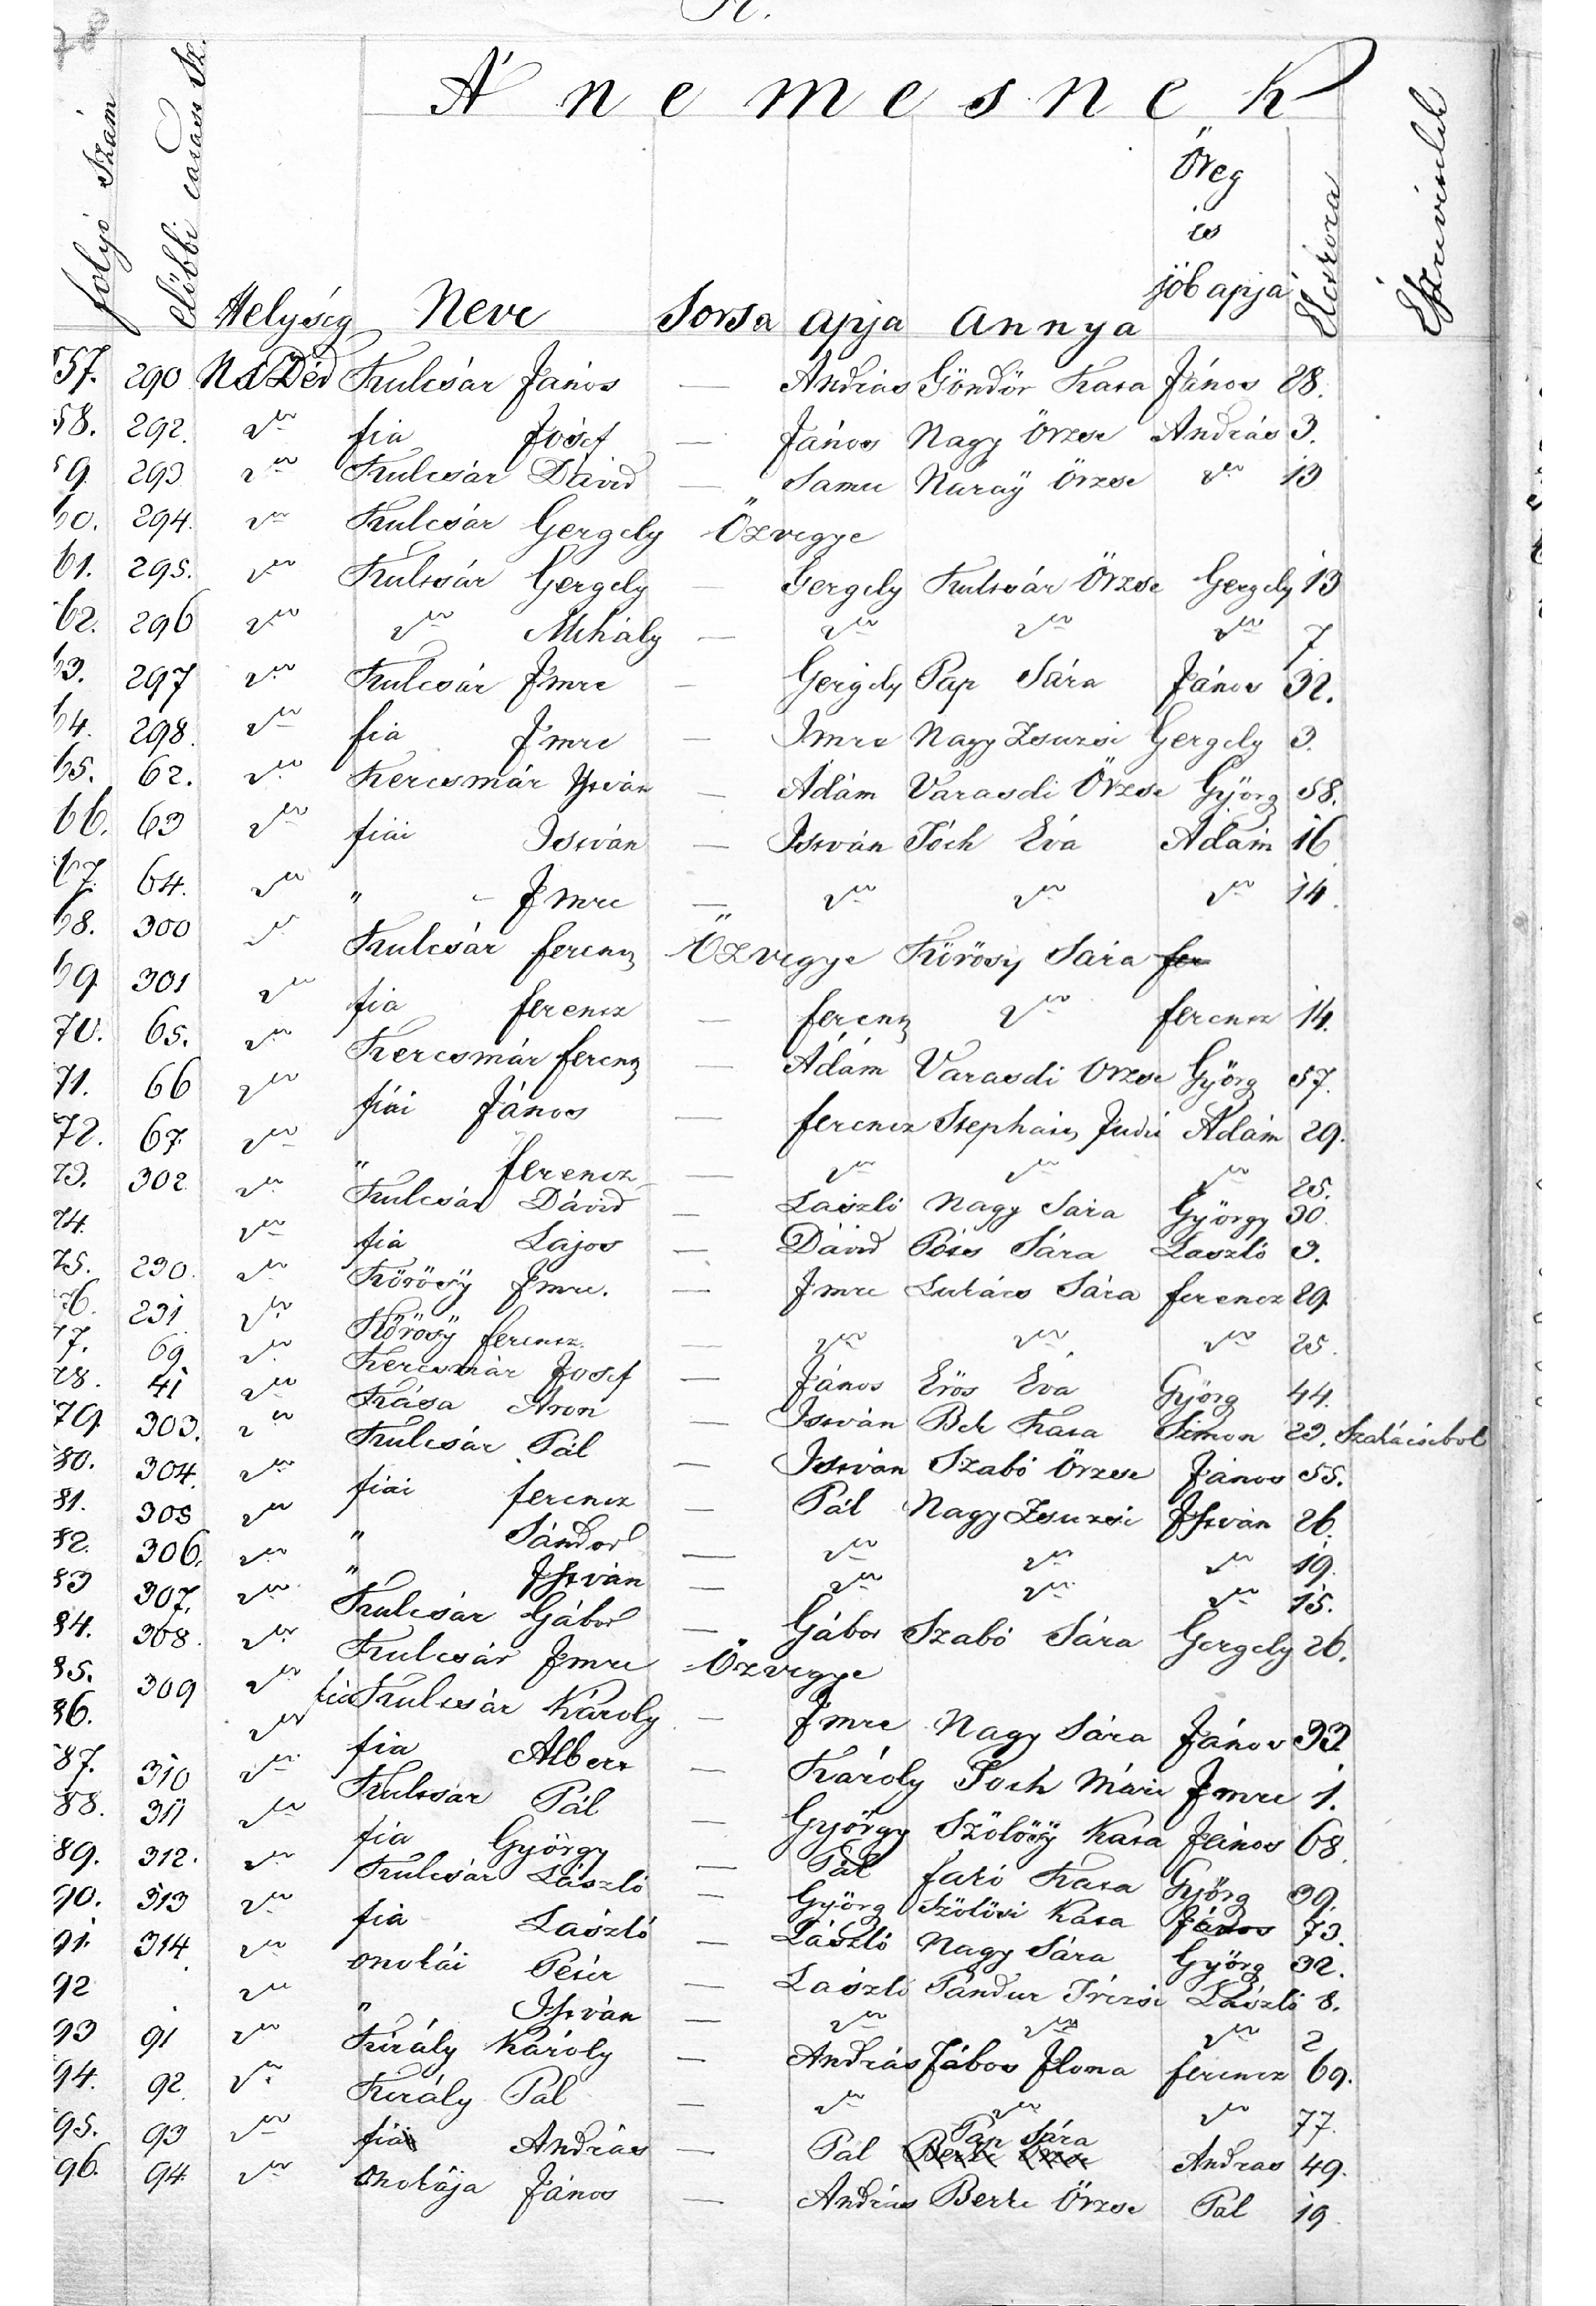 K.
A' nemesnek
folyó szám
előbbi
Helység
Neve
Sorsa
apja
annya
Öreg
és
jób apja
57. 290 N. Déd Kulcsár János — András Göndör Kata János 28.
58. 292. do fia Jósef — János Nagy Örzse András 3.
59. 293 do Kulcsár Dávid — Samu Naraÿ Örzse do 13
60. 294. do Kulcsár Gergely Özvegye
61. 295. do Kulcsár Gergely — Gergely Kulcsár Örzse Gergely 13
62. 296 do do Mihály — do do do 7
63. 297 do Kulcsár Imre — Gergely Pap Sára János 32.
64. 298. do fia Imre — Imre Nagy Zsuzsi Gergely 3.
65. 62. do Kercsmár István — Ádám Varasdi Örzse Györg 58.
66. 63 do fiái István — István Tóth Éva Ádám 16
67. 64. do " - Imre — do do do 14.
68. 300 do Kulcsár ferencz Özvegye Körösy Sára fer
69 301 do fia ferencz — ferencz do ferencz 14.
70. 65. do Kercsmár ferencz — Ádám Varasdi Orzse Györg 57.
71. 66 do fiái János — ferencz Judi Ádám 29.
72. 67. do " ferencz — do do do 25.
73. 302 do Kulcsár Dávid — László Nagy Sára György 30.
74. do fia Lajos — Dávid Sára László 3.
75. 230. do Körösÿ Imre. — Imre Lukács Sára ferencz 29
76. 231 do Körösÿ ferencz. — do do do 25.
77. 69 do Kercsmár Josef — János Erös Éva Györg 44.
78. 41 do Kása Áron — István Bek Kata Simon 23. Szakácsibol
79 303. do Kulcsár Pál — István Szabó Örzse János 55.
80. 304. do fiái ferencz — Pál Nagy Zsuzsi István 26.
81. 305 do " Sándor — do do do 19.
82. 306. do " István — do do do 15.
83 307. do Kulcsár Gábor — Gábor Szabó Sára Gergely 26.
84. 308. do Kulcsár Imre Özvegye
85. 309 do fia Kulcsár Károly — Imre Nagy Sára János 33
86. do fia Albert — Károly Toth Mári Imre 1.
87. 310 do Kulcsar Pál — György Szölösÿ Kata János 68.
88. 311 do fia György — Pál Kata Györg 39.
89. 312. do Kulcsár László — Györg Szölösi Kata János 73.
90. 313 do fia László — László Nagy Sára Györg 32.
91. 314. do onokái Péter — László Sándur Trézsi László 8.
92 do " István — do do do 2
93 91 do Király Károly — András Jábor Ilona ferencz 69.
94. 92. do Király Pál — do do do 77.
95. 93 do fia András — Pál Pap Sára Berke Örzse Andras 49.
96. 94 do onokája János — András Berke Örzse Pál 19